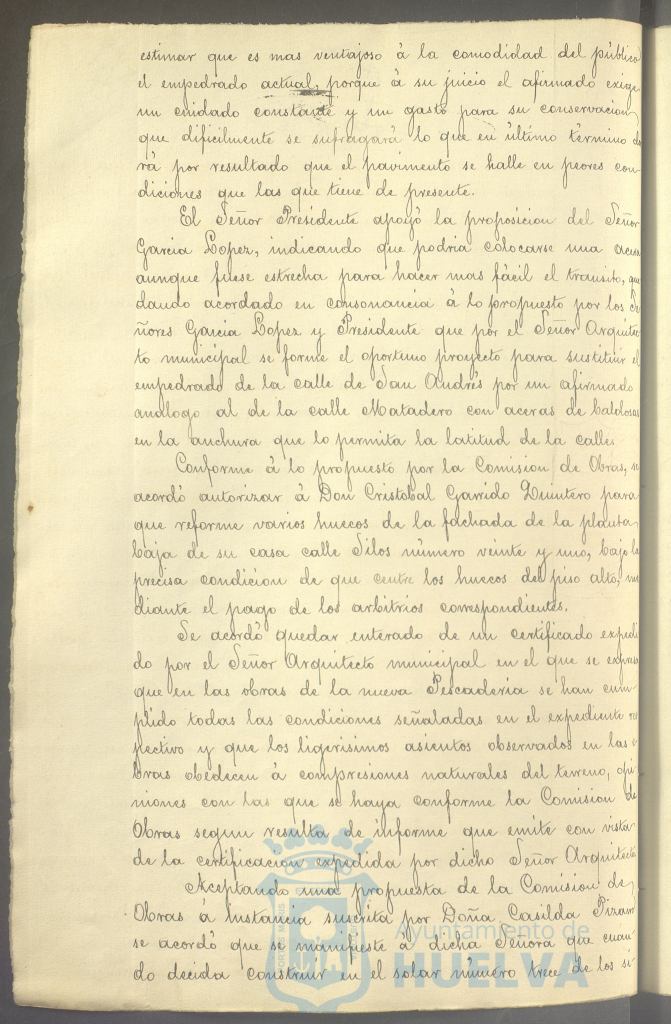 estimar que es mas ventajoso á la comodidad del público
el empedrado actual, porque á su juicio el afirmado exige
un cuidado constante y un gasto para su conservacion
que dificilmente se sufragará lo que en último término da
rá por resultado que el pavimento se halle en peores con
diciones que las que tiene de presente.
El Señor Presidente apoyó la proposicion del Señor
Garcia Lopez, indicando que podria colocarse una acera
aunque fuese estrecha para hacer mas fácil el transito, que
dando acordado en consonancia á lo propuesto por los Se
ñores Garcia Lopez y Presidente que por el Señor Arquitec
to municipal se forme el oportuno proyecto para sustituir el
empedrado de la calle de San Andrés por un afirmado
análogo al de la calle Matadero con aceras de baldosas
en la anchura que lo permita la latitud de la calle.
Conforme á lo propuesto por la Comision de Obras, se
acordó autorizar á Don Cristobal Garrido Quintero para
que reforme varios huecos de la fachada de la planta
baja de su casa calle Silos número veinte y uno, bajo la
precisa condicion de que centre los huecos del piso alto, me
diante el pago de los arbitrios correspondientes.
Se acordó quedar enterado de un certificado expedi
do por el Señor Arquitecto municipal en el que se expresa
que en las obras de la nueva Pescaderia se han cum
plido todas las condiciones señaladas en el expediente res
pectivo y que los ligerisimos asientos observados en las o
bras obedecen á compresiones naturales del terreno, opi
niones con las que se haya conforme la Comision de
Obras segun resulta de informe que emite con vista
de la certificacion expedida por dicho Señor Arquitecto
Aceptando una propuesta de la Comision de
Obras á instancia suscrita por Doña Casilda Pizarro
se acordó que se manifieste á dicha Señora que cuan
do decida construir en el solar número trece de los si
Ayuntamiento de
HUELVA